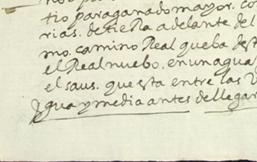 tio para ganado mayor. co
rias. de tierra adelante del
mo. camino Real que ba dest
el Real nuebo. en un agua
el saus. que esta entre las
legua y media antes de llegar